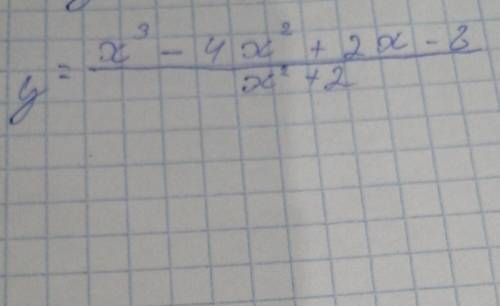 y = \frac{x^3 - 4x^2 + 2x - 8}{x^2 + 2}